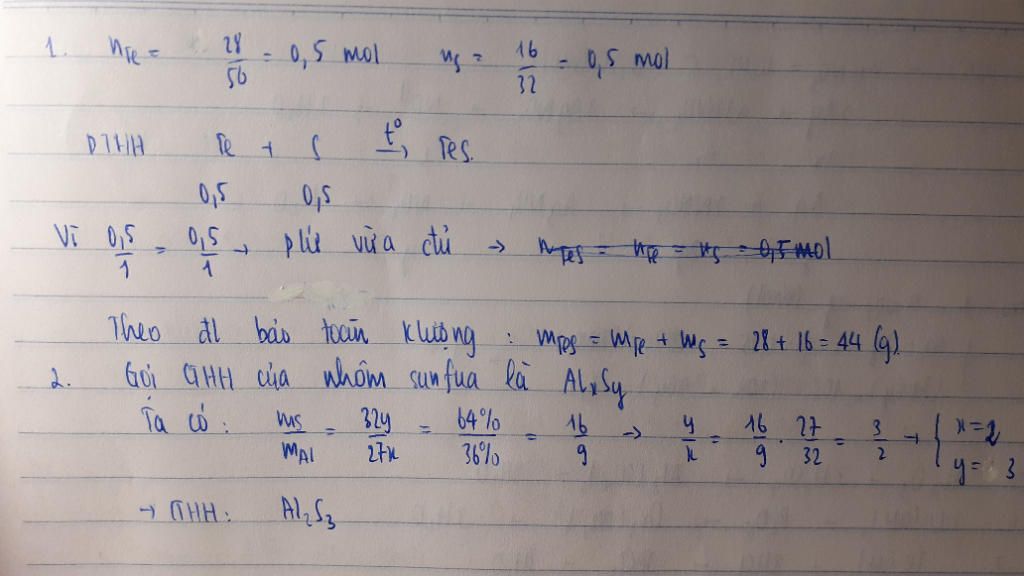 1. nFe = 28/56 = 0,5 mol nS = 16/32 = 0,5 mol
PTHH Fe + S t°→ FeS.
0,5 0,5
Vì 0,5/1 = 0,5/1 → pứ vừa đủ → nFeS = nFe = nS = 0,5 mol
Theo đl bảo toàn klượng : mFeS = mFe + mS = 28 + 16 = 44 (g).
2. Gọi CTHH của nhôm sunfua là AlxSy
Ta có : mS/mAl = 32y/27x = 64%/36% = 16/9 → y/x = 16/9 . 27/32 = 3/2 → { x = 2
y = 3
→ CTHH : Al₂S₃